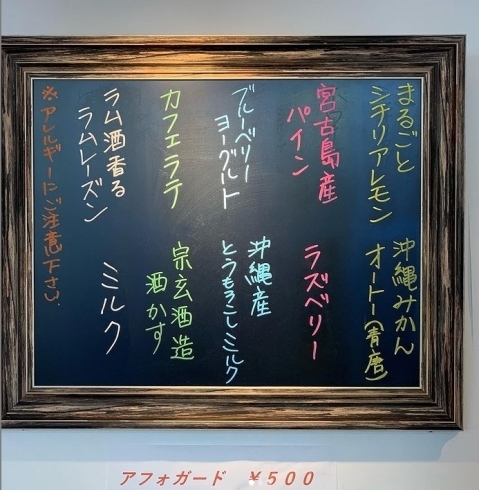 まるごと
シチリアレモン
宮古島産
パイン
ブルーベリー
ヨーグルト
カフェラテ
ラム酒香る
ラムレーズン
沖縄みかん
オートー(青唐)
ラズベリー
沖縄産
とうもろこしミルク
宗玄酒造
酒かす
ミルク
※アレルギーにご注意下さい.
アフォガード ¥500